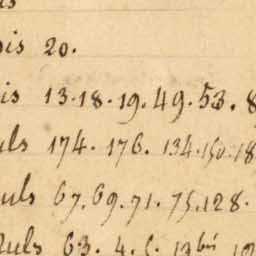 is
is 20.
is 13.18.19.49.53.8
uls 174. 176. 134.150.18
uls 67.69.71.75.128.
uls 63. 4. 5. 13 bis